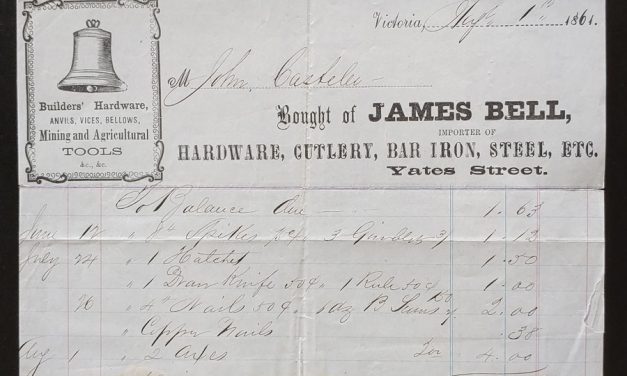 Builders' Hardware,
ANVILS, VICES, BELLOWS,
Mining and Agricultural
TOOLS
&c., &c.
Victoria, 1st 1861
M John
Bought of JAMES BELL,
IMPORTER OF
HARDWARE, CUTLERY, BAR IRON, STEEL, ETC.
Yates Street.
To Balance due 1.63
June 12 " Spikes 3 1.12
July 24 " 1 Hatchet 1.50
" 1 Draw Knife 50¢ " 1 Rule 50¢ 1.00
26 " 4" Nails 50¢ 1 dz B 2.00
" Copper Nails .38
Aug 1 " 2 Axes 4.00